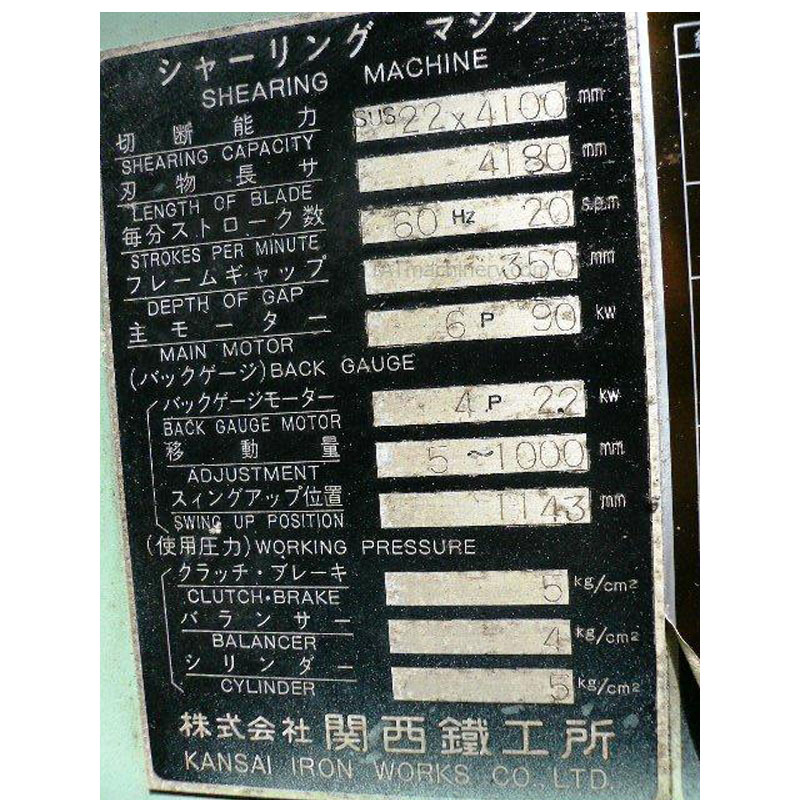 シャーリング マシン
SHEARING MACHINE
切断能力 SUS 22x4100 mm
SHEARING CAPACITY
刃物長サ 4180 mm
LENGTH OF BLADE
毎分ストローク数 60 Hz 20 s.p.m
STROKES PER MINUTE
フレームギャップ 350 mm
DEPTH OF GAP
主モーター 6 P 90 kw
MAIN MOTOR
(バックゲージ) BACK GAUGE
バックゲージモーター 4 P 2.2 kw
BACK GAUGE MOTOR
移動量 5~1000 mm
ADJUSTMENT
スィングアップ位置 1143 mm
SWING UP POSITION
(使用圧力) WORKING PRESSURE
クラッチ・ブレーキ 5 kg/cm2
CLUTCH・BRAKE
バランサー 4 kg/cm2
BALANCER
シリンダー 5 kg/cm2
CYLINDER
株式会社 関西鐵工所
KANSAI IRON WORKS CO., LTD.